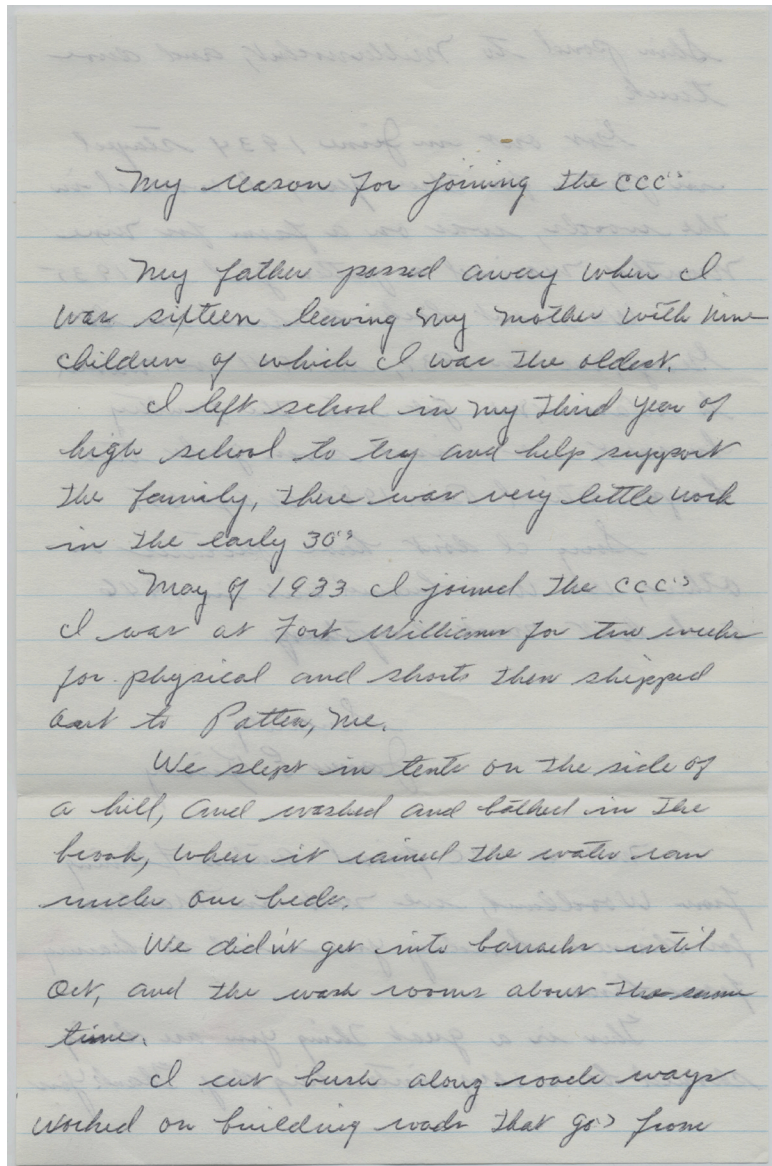 My reason for joining the CCC's
My father passed away when I
was sixteen leaving my mother with nine
children of which I was the oldest.
I left school in my third year of
high school to try and help support
the family, there was very little work
in the early 30's
May of 1933 I joined the CCC's
I was at Fort Williams for two weeks
for physical and shorts then shipped
out to Patten, Me.
We slept in tents on the side of
a hill, and washed and bathed in the
brook, when it rained the water ran
under our beds.
We didn't get into barracks until
Oct, and the wash rooms about the same
time.
I cut bush along roads ways
worked on building roads that go's from